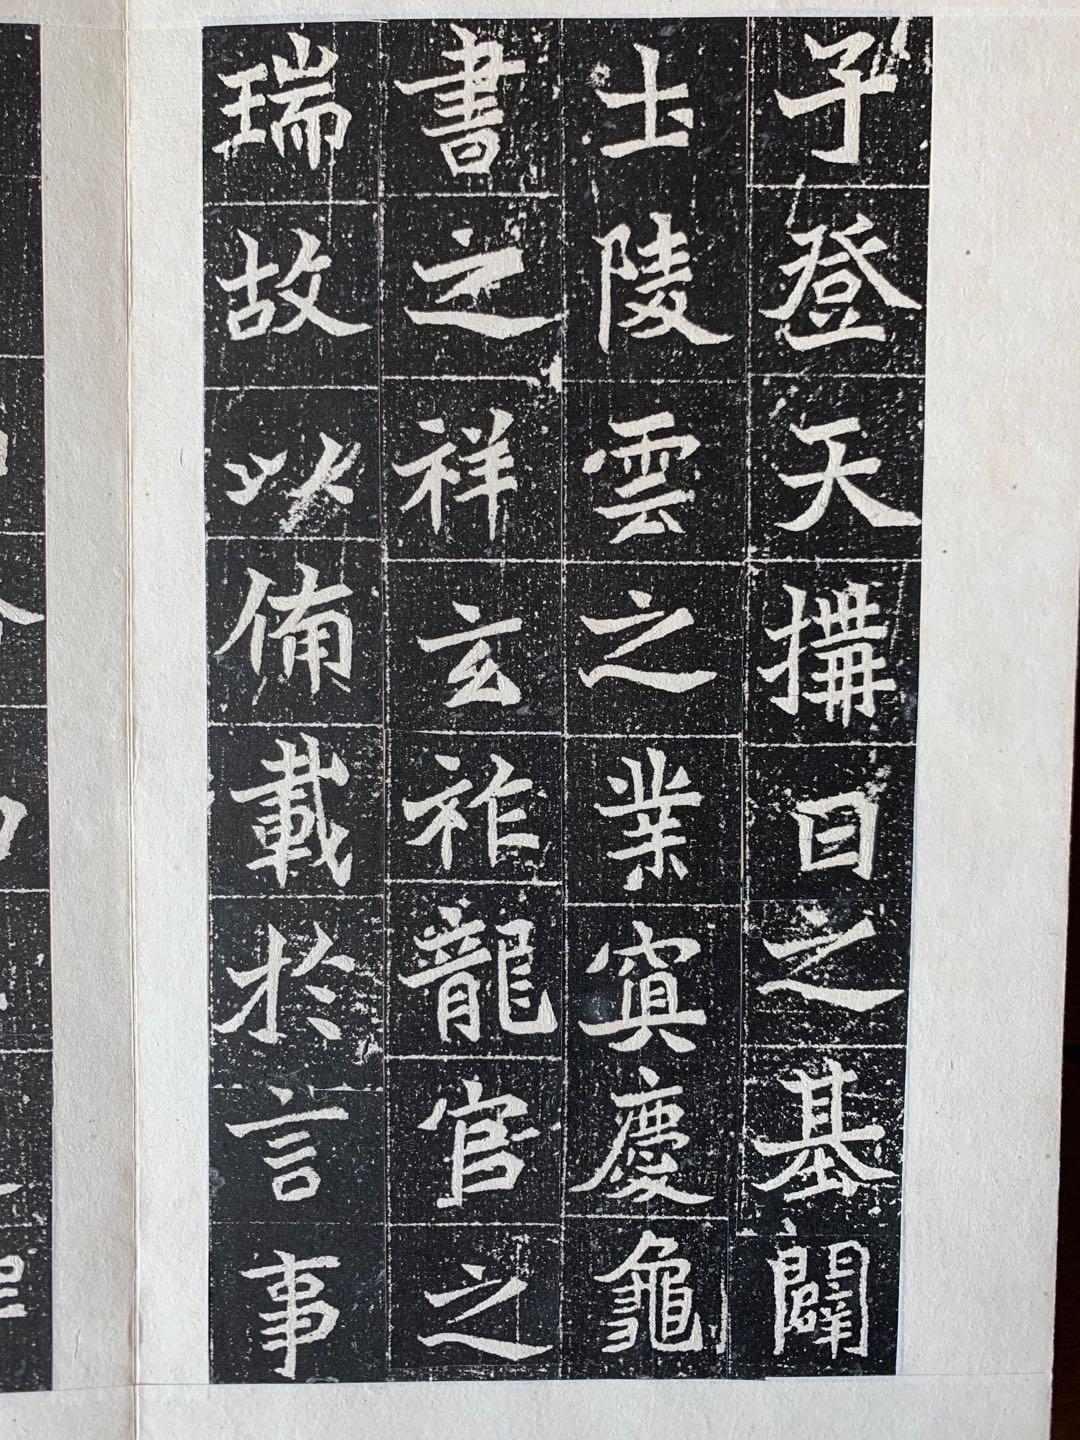 子登天搆日之基闢
士陵雲之業寘慶龜
書之祥玄祚龍官之
瑞故以備載於言事